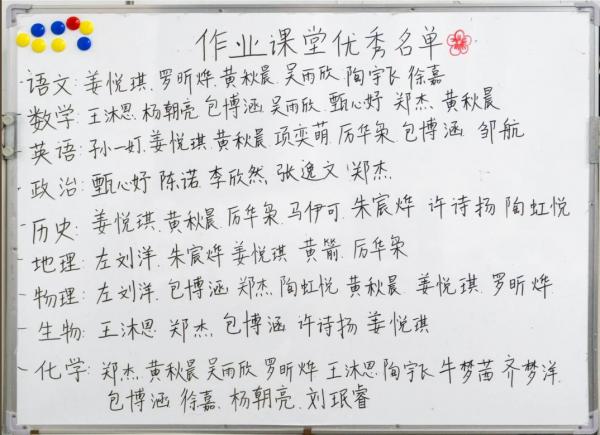 作业课堂优秀名单
语文: 姜悦琪. 罗昕烨. 黄秋晨. 吴雨欣. 陶宇飞. 徐嘉
数学: 王沐恩. 杨朝亮. 包博涵. 吴雨欣. 甄心妤 郑杰. 黄秋晨
英语: 孙一奵. 姜悦琪. 黄秋晨. 项奕萌. 厉华枭. 包博涵 邹航
政治: 甄心妤 陈诺. 李欣然. 张逸文 郑杰
历史: 姜悦琪. 黄秋晨. 厉华枭. 马伊可. 朱宸烨 许诗扬 陶虹悦
地理: 左刘洋. 朱宸烨 姜悦琪 黄箭. 厉华枭
物理: 左刘洋. 包博涵 郑杰. 陶虹悦 黄秋晨 姜悦琪. 罗昕烨
生物: 王沐恩 郑杰. 包博涵 许诗扬 姜悦琪
化学: 郑杰. 黄秋晨 吴雨欣 罗昕烨 王沐恩. 陶宇飞 牛梦茜 齐梦洋.
包博涵 徐嘉. 杨朝亮. 刘珉睿